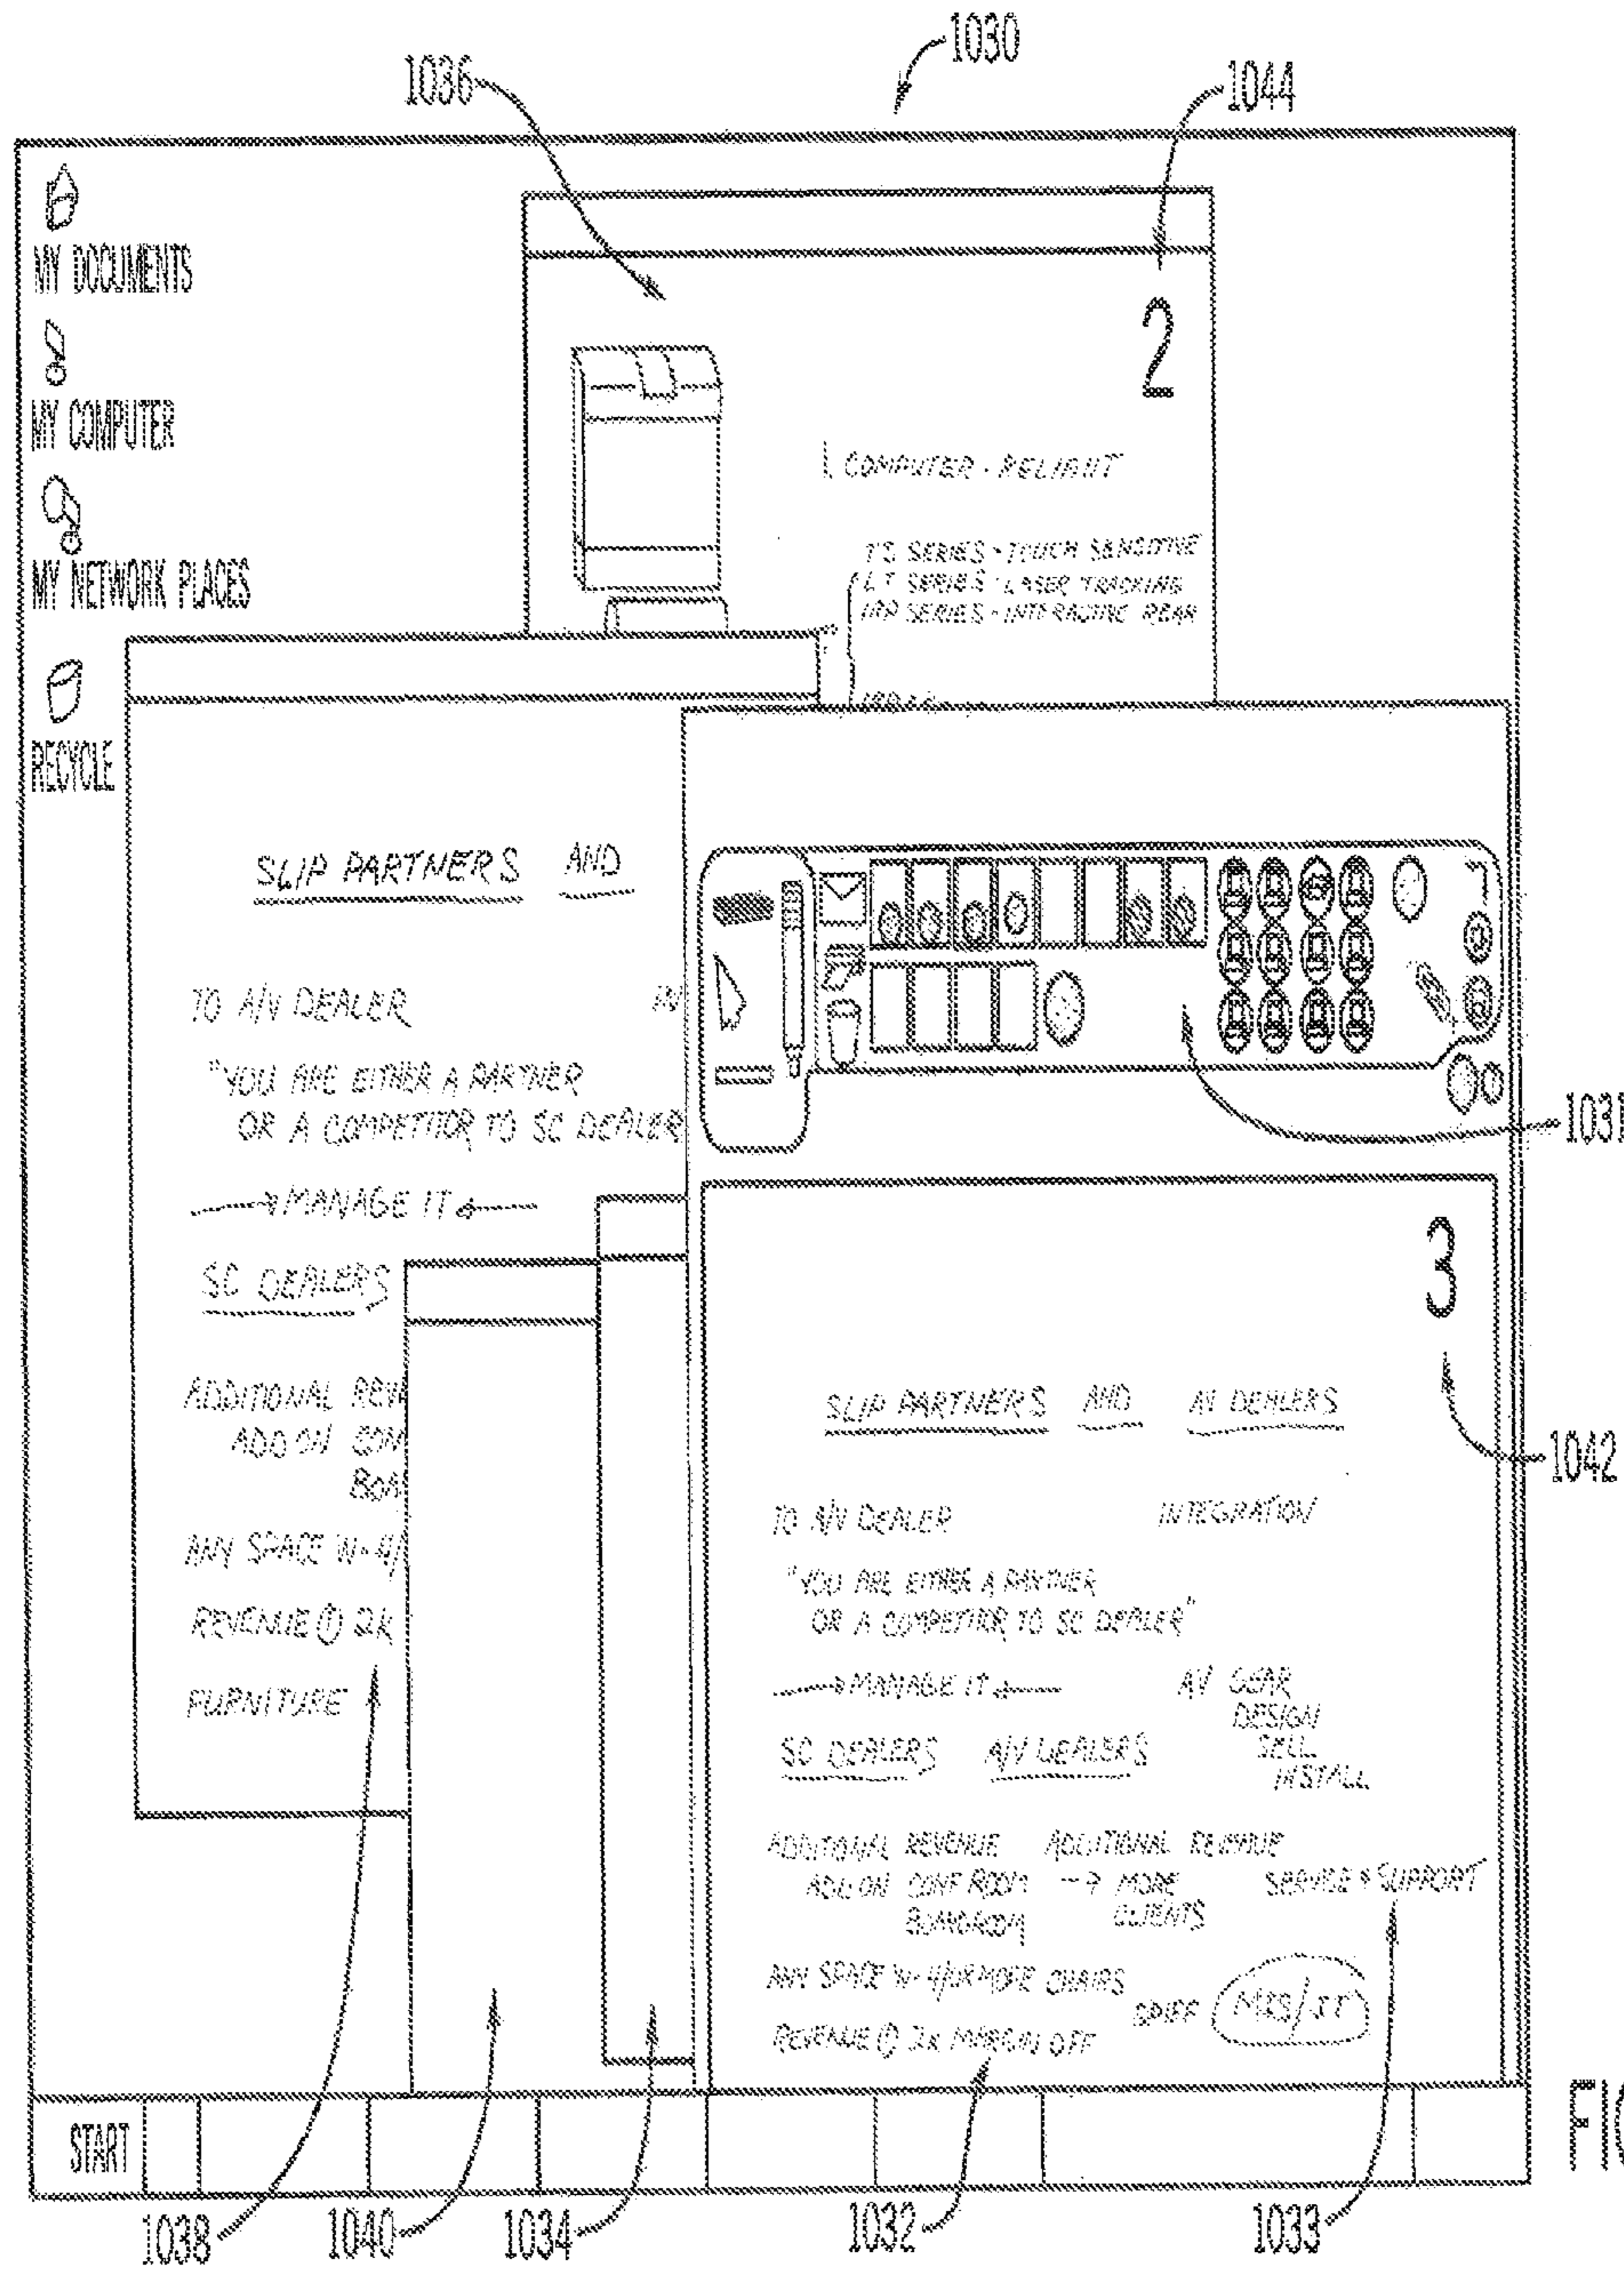 1030
1036
1044
MY DOCUMENTS
MY COMPUTER
MY NETWORK PLACES
RECYCLE
2
COMPUTER - RELIANT
TS SERIES - TOUCH SENSITIVE
LT SERIES - LASER TRACKING
SERIES - INTERACTIVE REAR
SLIP PARTNERS AND
TO A/V DEALER IN
"YOU ARE EITHER A PARTNER
OR A COMPETITOR TO SC DEALER
MANAGE IT
SC DEALERS
ADDITIONAL REVE
ADD ON CON
BOA
ANY SPACE W- 4/
REVENUE @ 2K
FURNITURE
1031
3
1042
SLIP PARTNERS AND AV DEALERS
TO A/V DEALER INTEGRATION
"YOU ARE EITHER A PARTNER
OR A COMPETITOR TO SC DEALER"
MANAGE IT AV GEAR
DESIGN
SELL
INSTALL
SC DEALERS A/V DEALERS
ADDITIONAL REVENUE ADDITIONAL REVENUE
ADD ON CONF ROOM → MORE SERVICE & SUPPORT
BOARDROOM CLIENTS
ANY SPACE W- 4/OR MORE CHAIRS
SPIFF
REVENUE @ 2K MARGIN OFF
START
FIG
1038
1040
1034
1032
1033